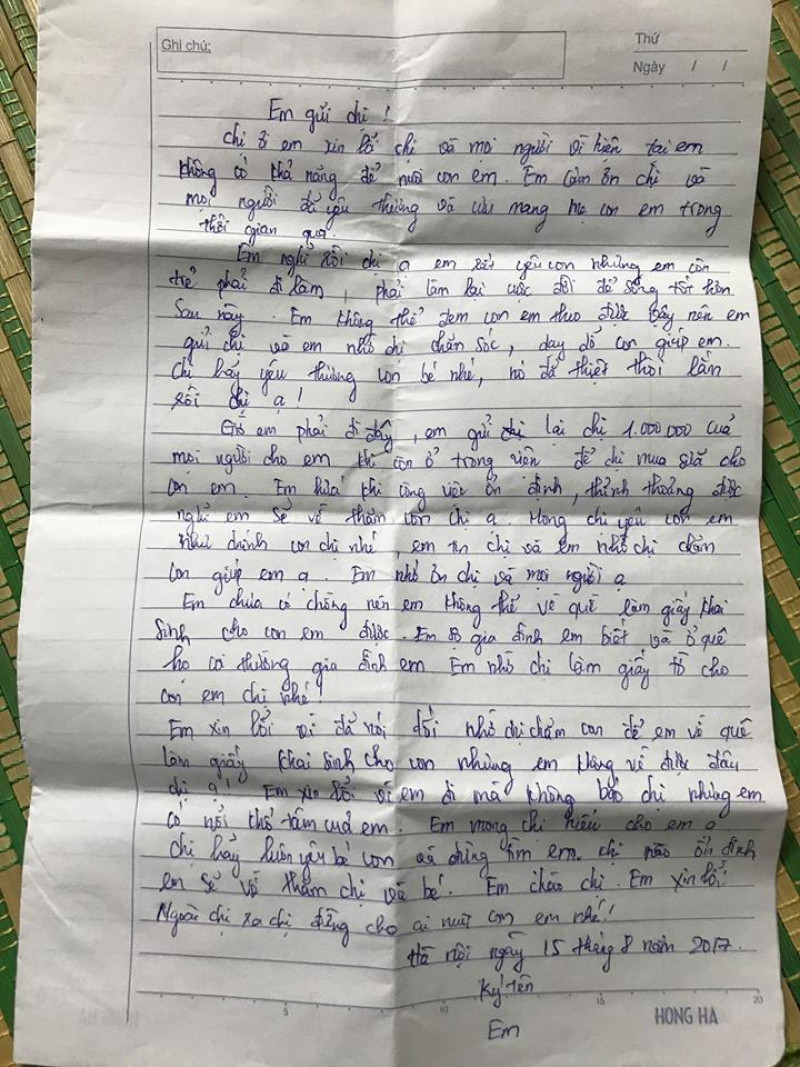 Ghi chú:
Thứ
Ngày / /
Em gửi chị !
Chị ơi em xin lỗi chị và mọi người vì hiện tại em
không có khả năng để nuôi con em. Em cảm ơn chị và
mọi người đã yêu thương và cưu mang mẹ con em trong
thời gian qua.
Em nghĩ rồi chị ạ em rất yêu con nhưng em còn
trẻ phải đi làm, phải làm lại cuộc đời để sống tốt hơn
sau này. Em không thể đem con em theo được vậy nên em
gửi chị và em nhờ chị chăm sóc, dạy dỗ con giúp em.
Chị hãy yêu thương con bé nhé, nó đã thiệt thòi lắm
rồi chị ạ !
Giờ em phải đi đây, em gửi lại chị 1.000.000 của
mọi người cho em khi còn ở trong viện để chị mua sữa cho
con em. Em hứa khi công việc ổn định, thỉnh thoảng được
nghỉ em sẽ về thăm con chị ạ. Mong chị yêu con em
như chính con chị nhé, em tin chị và em nhờ chị chăm
con giúp em ạ. Em nhớ ơn chị và mọi người ạ
Em chưa có chồng nên em không thể về quê làm giấy khai
sinh cho con em được. Em sợ gia đình em biết và ở quê
họ cười thường gia đình em. Em nhờ chị làm giấy tờ cho
con em chị nhé !
Em xin lỗi vì đã nói dối nhờ chị chăm con để em về quê
làm giấy khai sinh cho con nhưng em không về được đâu
chị ạ ! Em xin lỗi vì em đi mà không báo chị nhưng em
có nỗi khổ tâm của em. Em mong chị hiểu cho em ạ
chị hãy luôn yêu bé con và đừng tìm em. khi nào ổn định
em sẽ về thăm chị và bé. Em chào chị. Em xin lỗi !
Ngoài chị ra chị đừng cho ai nuôi con em nhé !
Hà nội ngày 15 tháng 8 năm 2017.
Ký tên
Em
5 10 15 20
HONG HA